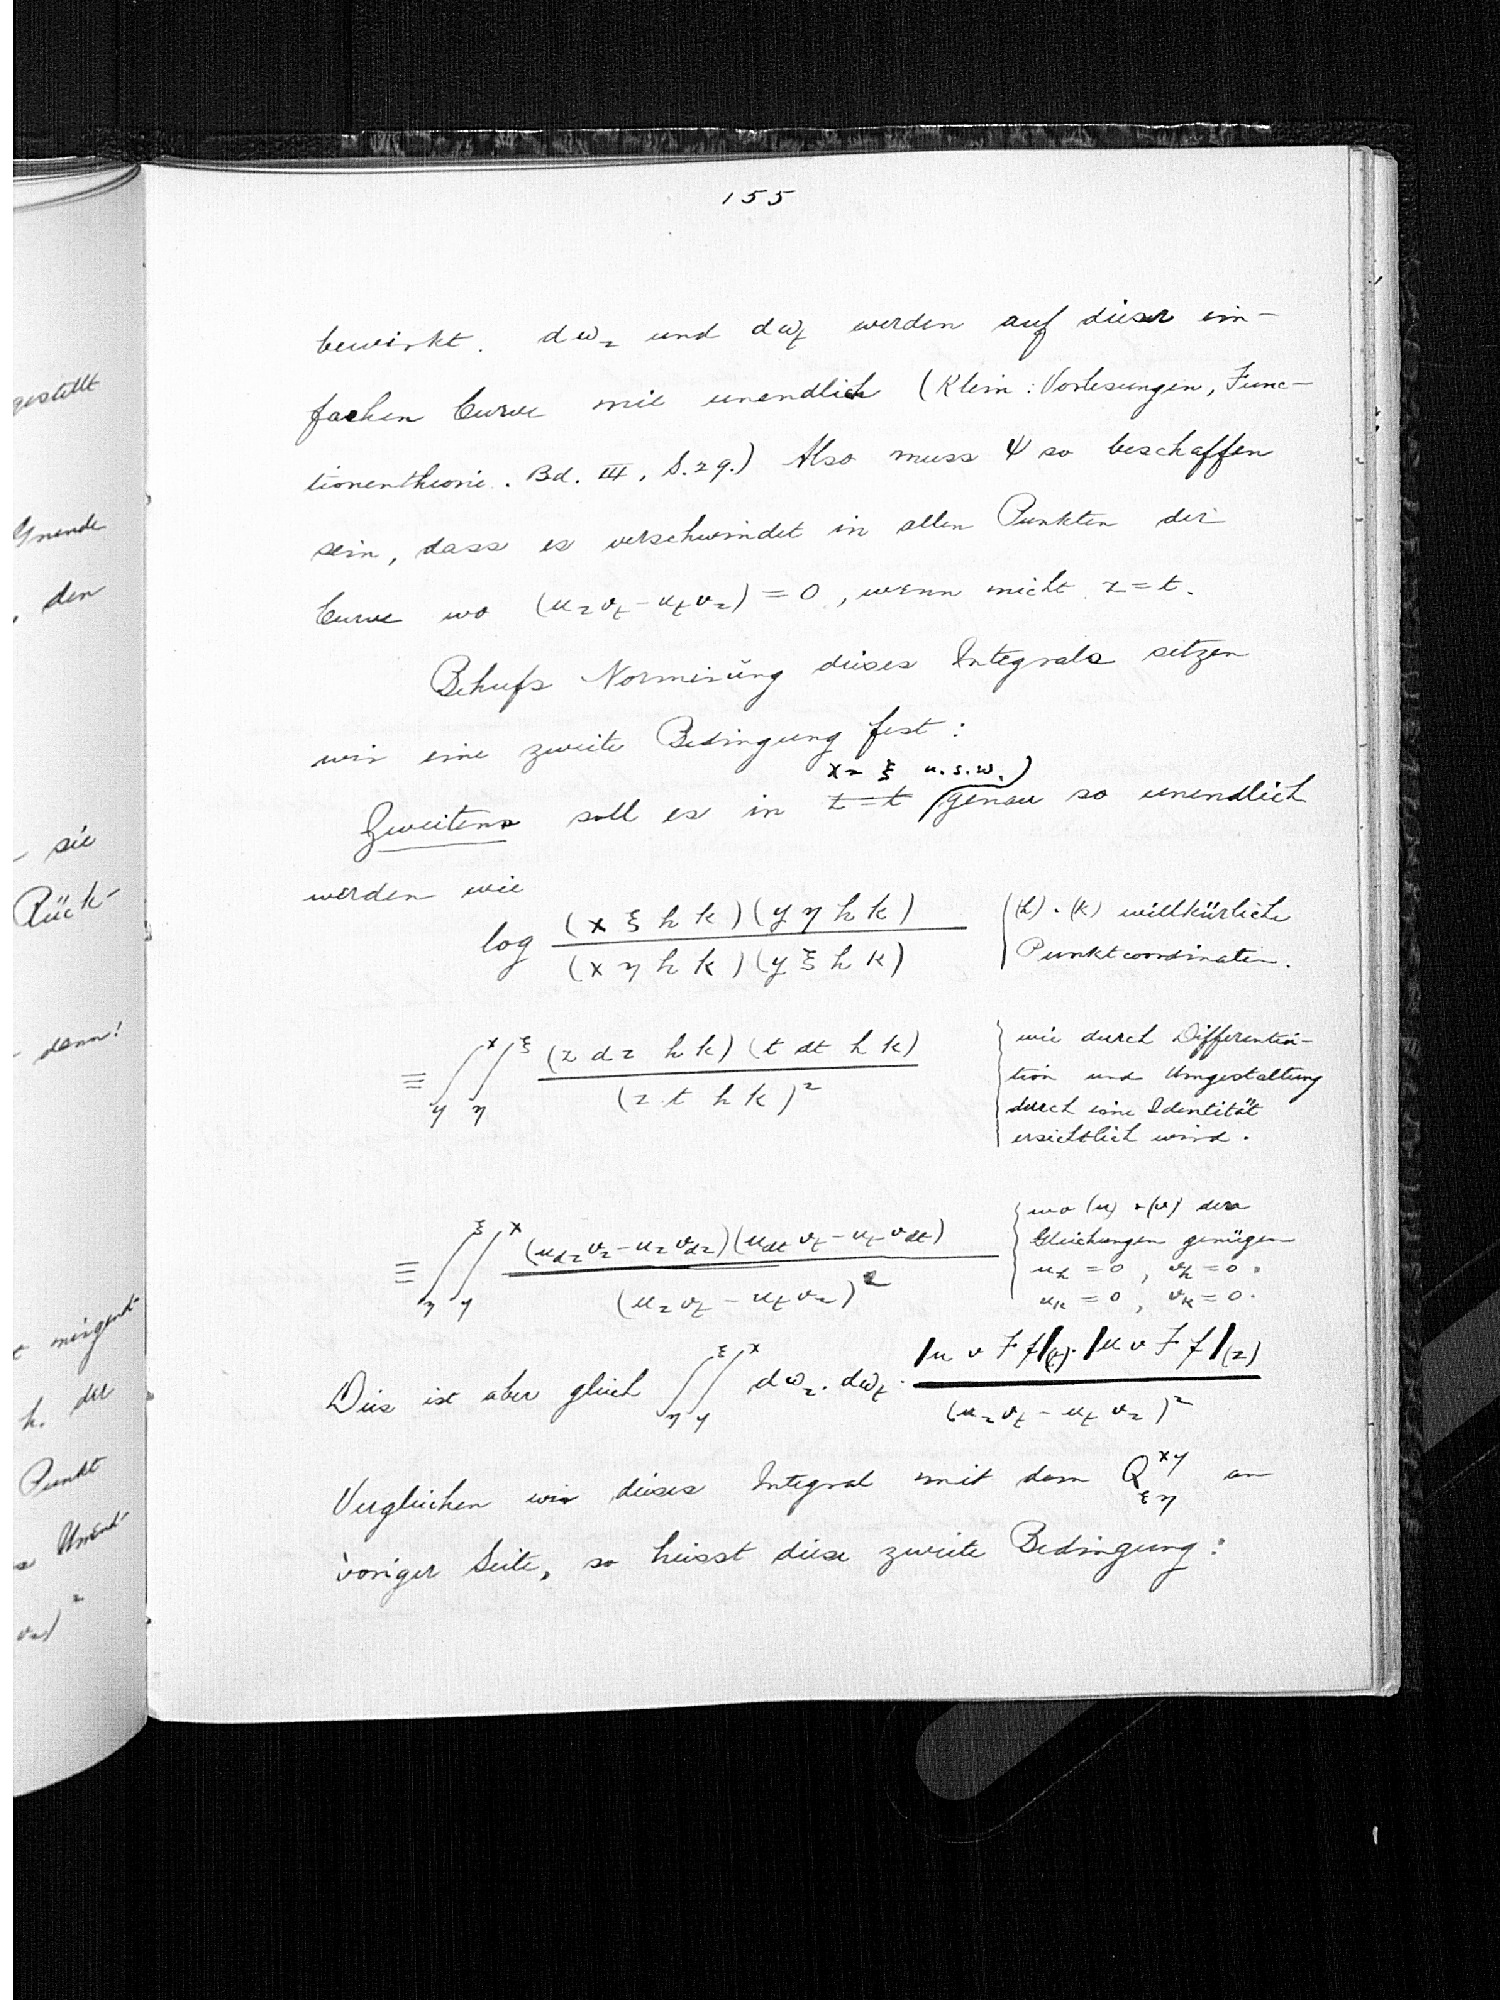 155
bewirkt. dω_z und dω_t werden auf dieser ein-
fachen Curve nie unendlich (Klein: Vorlesungen, Func-
tionentheorie. Bd. III, S. 29.) Also muss ψ so beschaffen
sein, dass es verschwindet in allen Punkten der
Curve wo (u_z v_t - u_t v_z) = 0, wenn nicht z = t.
Behufs Normirung dieses Integrals setzen
wir eine zweite Bedingung fest:
x = ξ u.s.w.)
Zweitens soll es in z = t (genau so unendlich
werden wie
log (x ξ h k)(y η h k) / (x η h k)(y ξ h k)
(h) · (k) willkürliche
Punktcoordinaten.
≡ ∫_y^x ∫_η^ξ (z dz h k)(t dt h k) / (z t h k)²
wie durch Differentia-
tion und Umgestaltung
durch eine Identität
ersichtlich wird.
≡ ∫_η^ξ ∫_y^x (u_dz v_z - u_z v_dz)(u_dt v_t - u_t v_dt) / (u_z v_t - u_t v_z)²
wo (u) + (v) den
Gleichungen genügen
u_h = 0, v_h = 0.
u_k = 0, v_k = 0.
Dies ist aber gleich ∫_η^ξ ∫_y^x dω_z. dω_t · |u v F f|_(t) · |u v F f|_(z) / (u_z v_t - u_t v_z)²
Vergleichen wir dieses Integral mit dem Q^{xy}_{ξη} an
voriger Seite, so heisst diese zweite Bedingung:
gestellt
den
sie
Rück-
denn!
nirgend-
h. der
Punkt